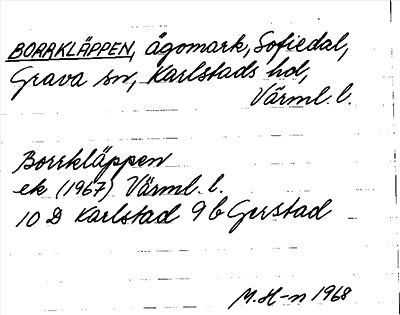 BORRKLÄPPEN, ägomark, Sofiedal,
Grava sn, Karlstads hd,
Värml. l.
Borrkläppen
ek (1967) Värml. l.
10 D Karlstad 9 b Gerstad
M. H-n 1968